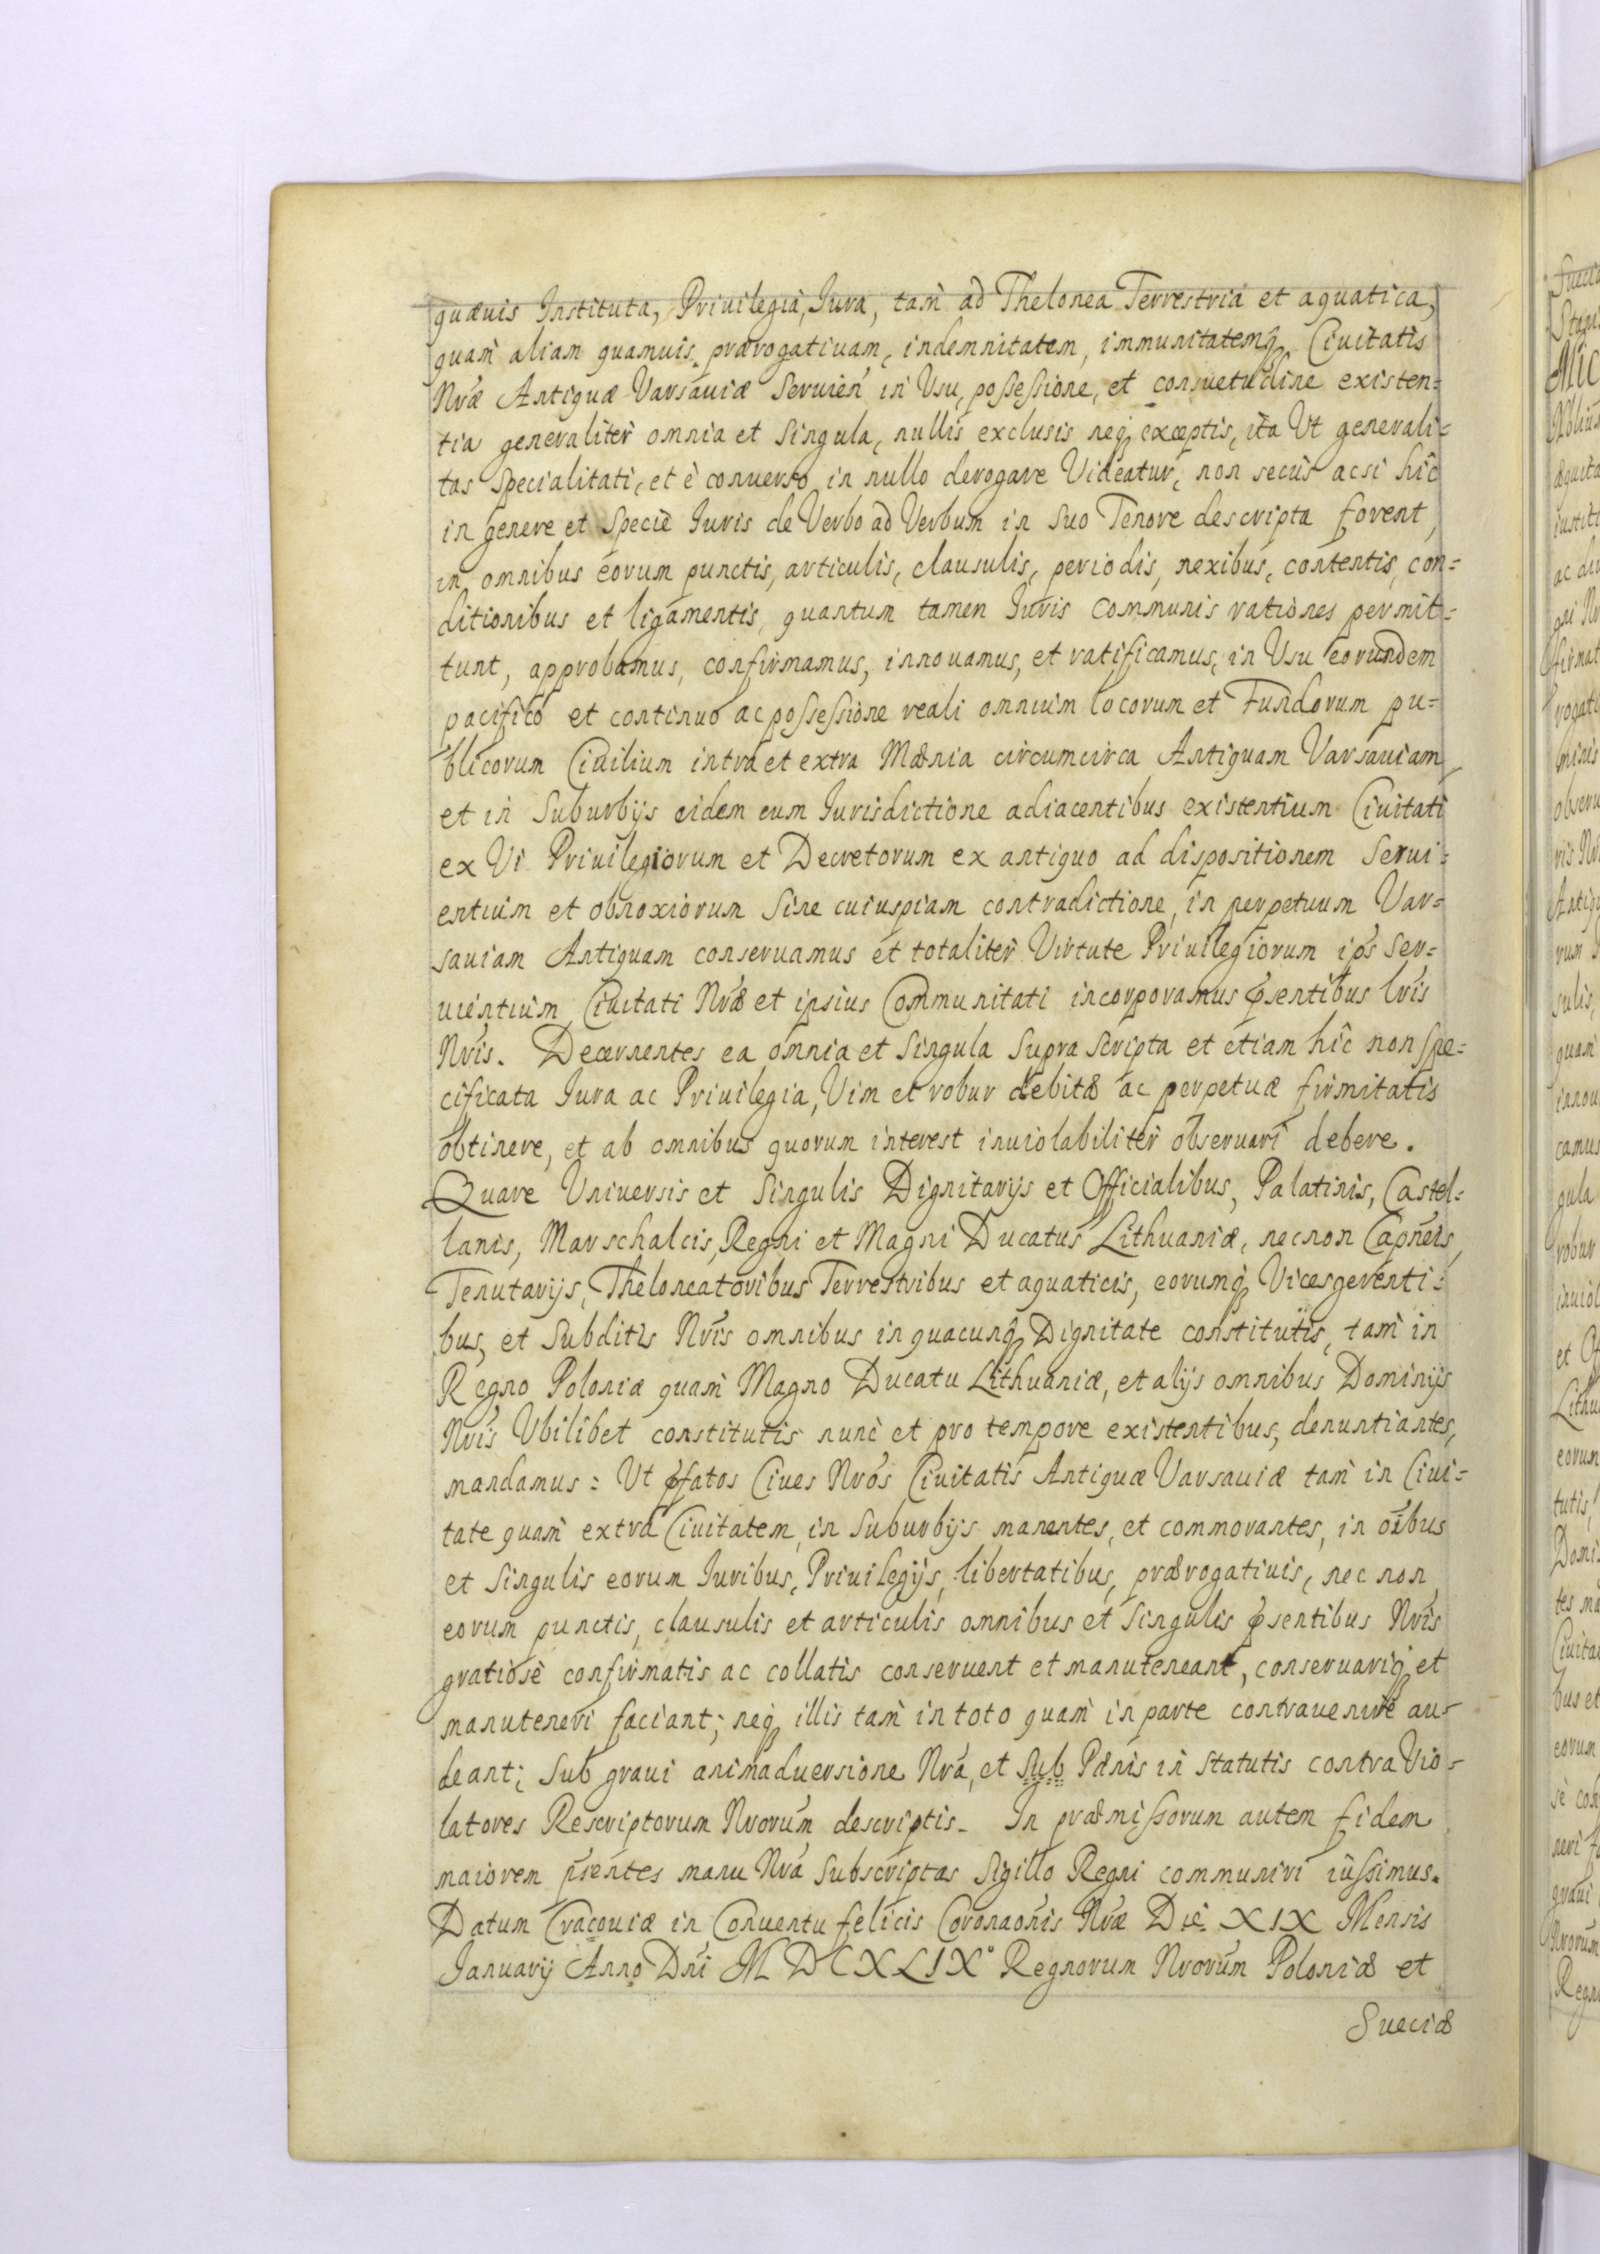 quæuis Instituta, Priuilegia, Iura, tam̀ ad Thelonea Terrestria et aquatica,
quam̀ aliam quamuis prærogatiuam, indemnitatem, immunitatemq̃ Ciuitatis
Nr̃æ Antiquæ Varsauiæ Seruieñ in Vsu, possessione, et consuetudine existen=
tia generaliter omnia et Singula, nullis exclusis neq̃ exceptis, ita Vt generali=
tas Specialitati, et è conuerso in nullo derogare Videatur, non secus acsi hîc
in genere et Specie Iuris de Verbo ad Verbum in Suo Tenore descripta forent,
in omnibus eorum punctis, articulis, clausulis, periodis, nexibus, contentis, con=
ditionibus et ligamentis, quantum tamen Iuris communis rationes permit=
tunt, approbamus, confirmamus, innouamus, et ratificamus, in Vsu eorundem
pacifico et continuo ac possessione reali omnium locorum et Fundorum pu=
blicorum Ciuilium intra et extra Mænia circumcirca Antiquam Varsauiam
et in Suburbijs eidem cum Iurisdictione adiacentibus existentium Ciuitati
ex Vi Priuilegiorum et Decretorum ex antiquo ad dispositionem Serui=
entium et obnoxiorum Sine cuiuspiam contradictione, in perpetuum Var=
sauiam Antiquam conseruamus et totaliter Virtute Priuilegiorum ip̃s Ser=
uientium Ciuitati Nr̃æ et ipsius Communitati incorporamus p̃sentibus lr̃is
Nr̃is. Decernentes ea omnia et Singula Supra Scripta et etiam hîc non Spe=
cificata Iura ac Priuilegia, Vim et robur debitæ ac perpetuæ firmitatis
obtinere, et ab omnibus quorum interest inuiolabiliter obseruari debere.
Quare Vniuersis et Singulis Dignitarijs et Officialibus, Palatinis, Castel=
lanis, Marschalcis, Regni et Magni Ducatus Lithuaniæ, necnon Capñeis,
Tenutarijs, Theloneatoribus Terrestribus et aquaticis, eorumq̃ Vicesgerenti=
bus, et Subditis Nr̃is omnibus in quacunq̃ Dignitate constitutis, tam̀ in
Regno Poloniæ quam̀ Magno Ducatu Lithuaniæ, et alijs omnibus Dominijs
Nr̃is Vbilibet constitutis nunc et pro tempore existentibus, denuntiantes,
mandamus: Vt p̃fatos Ciues Nr̃os Ciuitatis Antiquæ Varsauiæ tam̀ in Ciui=
tate quam̀ extra Ciuitatem, in Suburbijs manentes, et commorantes, in oĩbus
et Singulis eorum Iuribus, Priuilegijs, libertatibus, prærogatiuis, nec non
eorum punctis, clausulis et articulis omnibus et Singulis p̃sentibus Nr̃is
gratiosè confirmatis ac collatis conseruent et manuteneant, conseruariq̃ et
manuteneri faciant; neq̃ illis tam̀ in toto quam̀ in parte contrauenire au=
deant; Sub graui animaduersione Nr̃a, et Sub Pænis in Statutis contra Vio=
latores Rescriptorum Nrorũm descriptis. In præmissorum autem fidem
maiorem p̃sentes manu Nr̃a Subscriptas Sigillo Regni communiri iussimus.
Datum Cracouiæ in Conuentu felicis Coronaõnis Nr̃æ Die XIX Mensis
Ianuarij Anno Dñi MDCXLIX° Regnorum Nrorũm Poloniæ et
Sueciæ